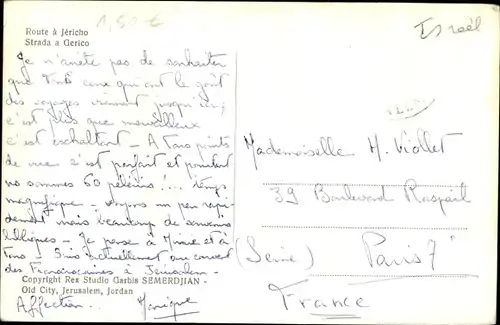 1,50 €
Israël
Route à Jéricho
Strada a Gerico
Je n'arrête pas de souhaiter
que tous ceux qui ont le goût
des voyages viennent jusqu'ici,
c'est plus que merveilleux
c'est exaltant - A tous points
de vue c'est parfait et pourtant
ns sommes 60 pèlerins !... temps
magnifique - voyons un peu rapi-
dement mais beaucoup de souvenirs
bibliques - Je pense à et à
tous - Suis actuellement au couvent
des Franciscaines à Jérusalem -
Copyright Rex Studio Garbis SEMERDJIAN -
Old City, Jerusalem, Jordan
Affection.. Monique
Mademoiselle H. Viollet
39 Boulevard Raspail
(Seine) Paris 7°
France